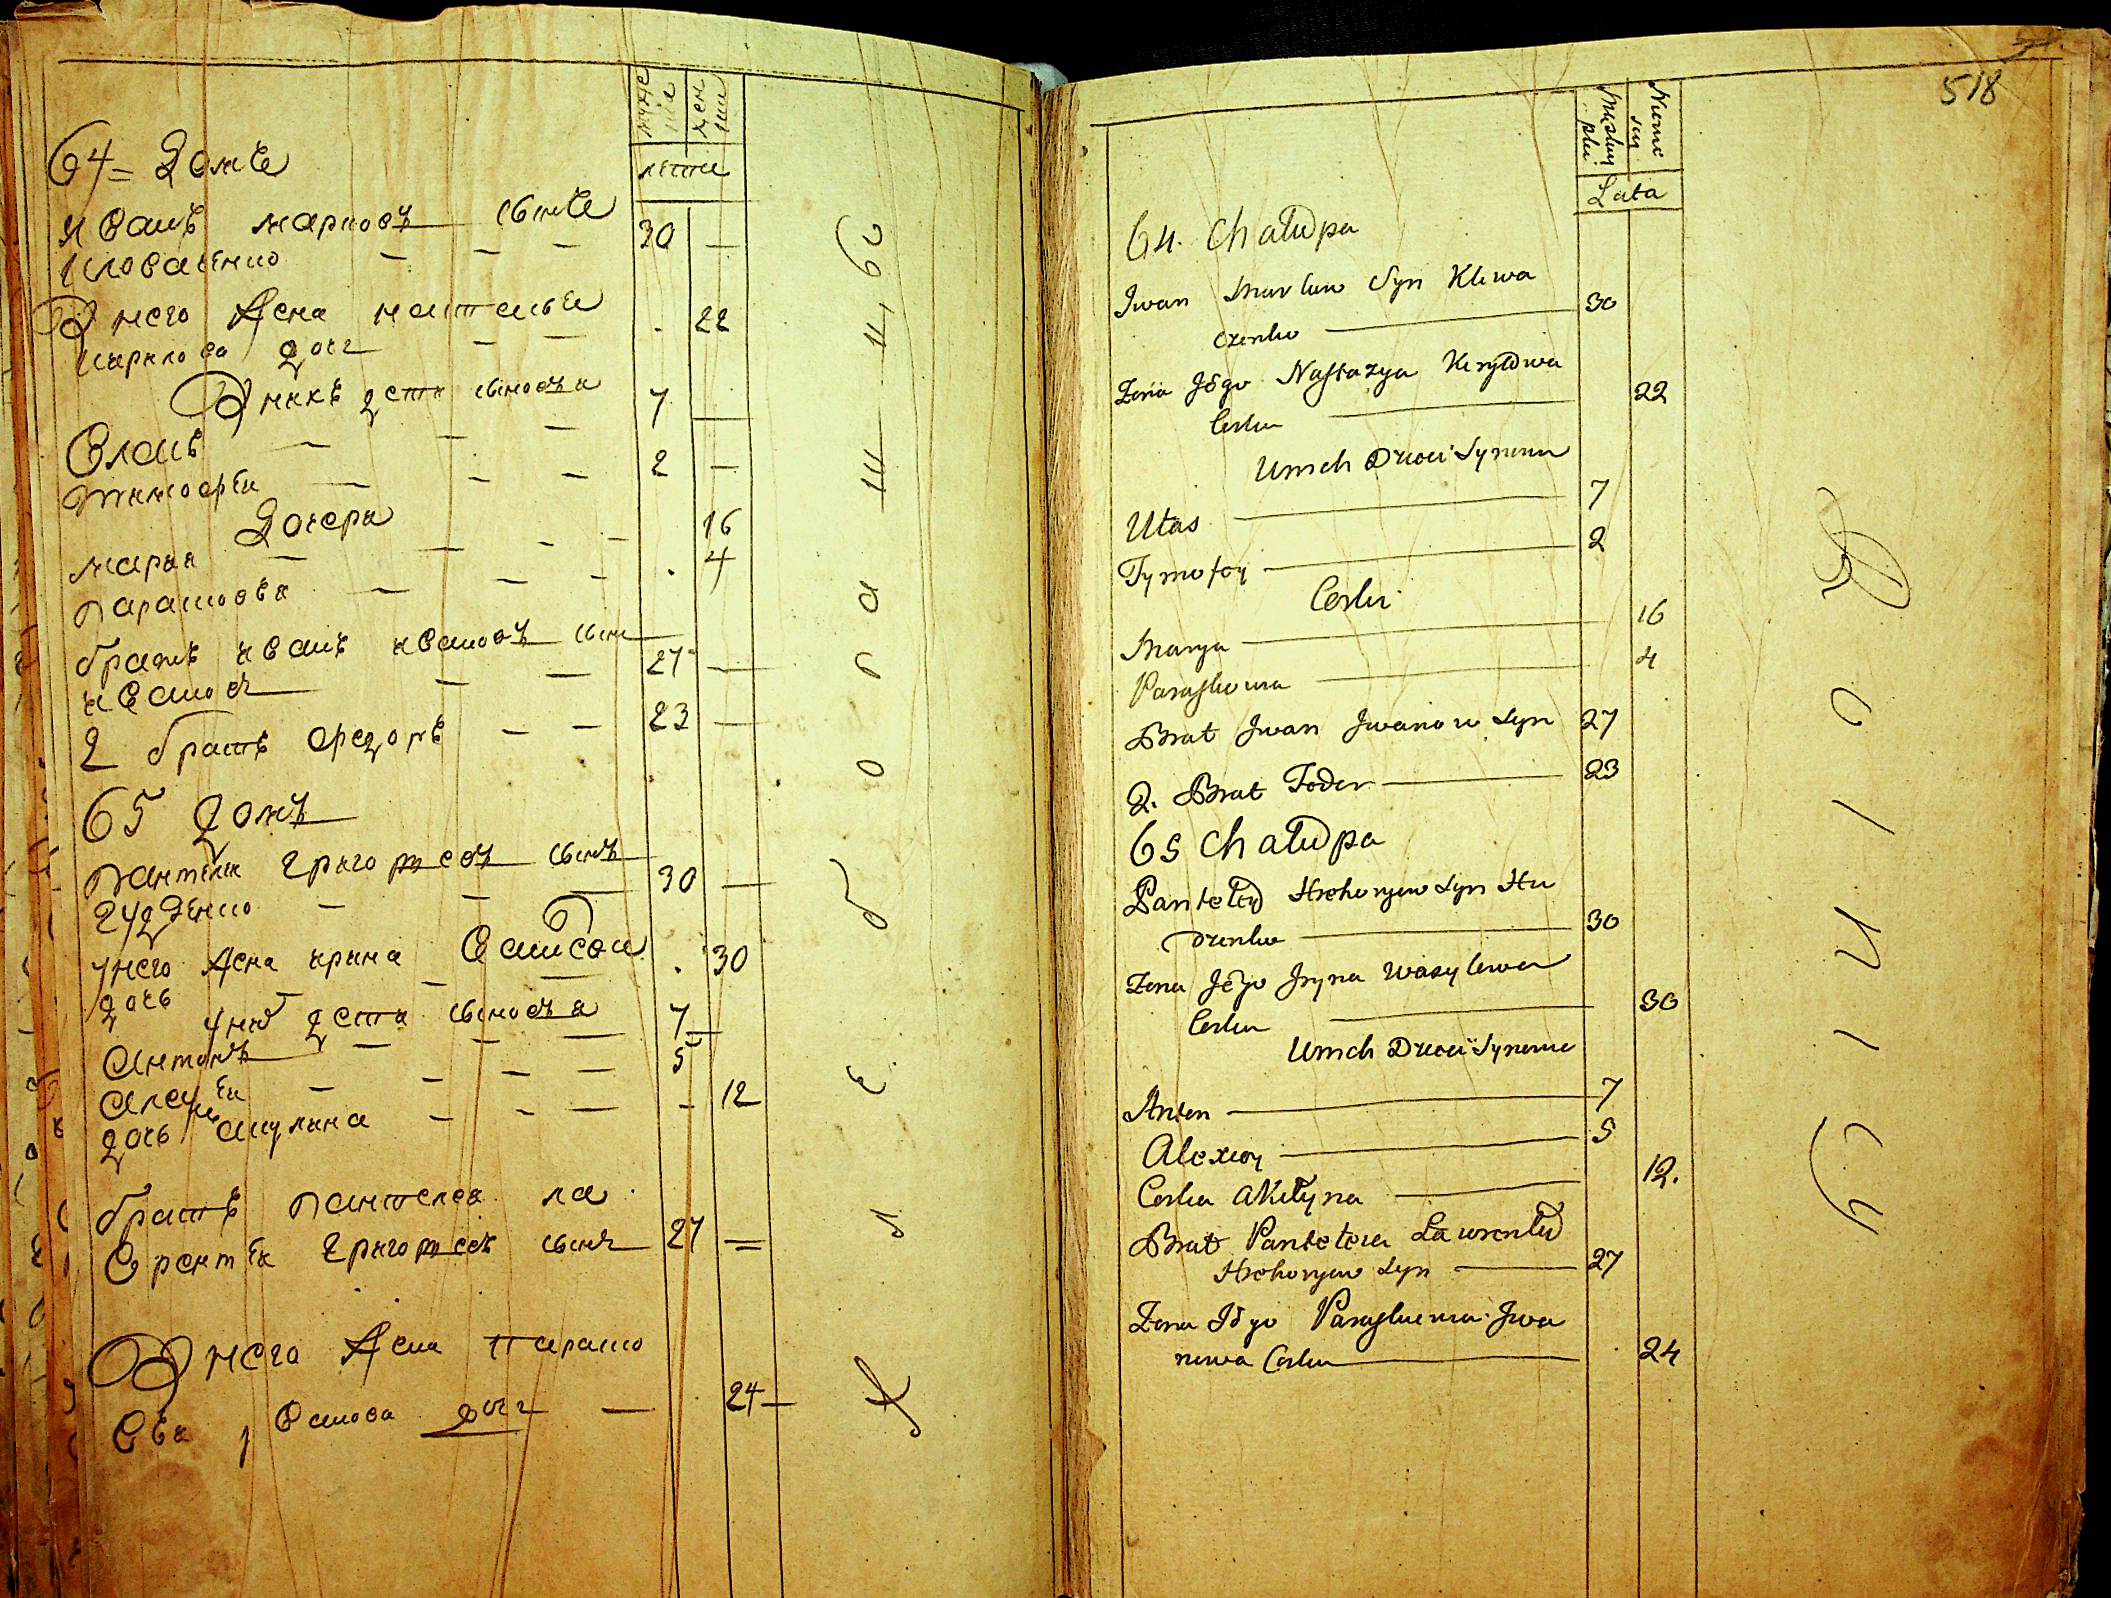 мужес
кіе
жен
скіе
лета
64 = Домъ
Иванъ марковъ сынъ
Кловаченко 30
У него жена настасья
кирилова дочь 22
У нихъ дети сыновья
Власъ 7
тимофей 2
Дочери
марья 16
парасковья 4
братъ иванъ ивановъ сынъ
ивановъ 27
2 братъ федоръ 23
65 домъ
пантелей григорьевъ сынъ
гузенко 30
у него жена ирина Василева
дочь 30
у них дети сыновья
Антонъ 7
Алексей 5
дочь акулина 12
братъ пантелея ла
врентей григорьевъ сынъ 27
У него жена параско
вья Иванова дочь 24
518
Męzkiy
płci
Niewie
sciy
Lata
64. Chałupa
Iwan Markow Syn Klewa
czenko 30
Zona Jego Nastazya Keryłowa
Corka 22
U nich Dzieci Synowie
Ułas 7
Tymofey 2
Corki
Marya 16
Paraskowia 4
Brat Iwan Iwanow Syn 27
2. Brat Fedor 23
65 Chałupa
Panteley Hrehoryew Syn Hu
dzenko 30
Zona Jego Iryna Wasylewa
Corka 30
U nich Dzieci Synowie
Anton 7
Alexiey 5
Corka Akilyna 12.
Brat Panteleia Lawrentey
Hrehoryew Syn 27
Zona Jego Paraskiewia Iwa
nowa Corka 24